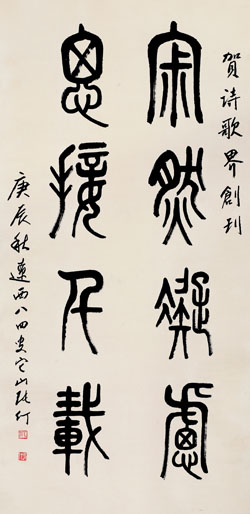 賀诗歌界創刊
寂然凝慮
思接千載
庚辰秋遼西八四叟它山張仃